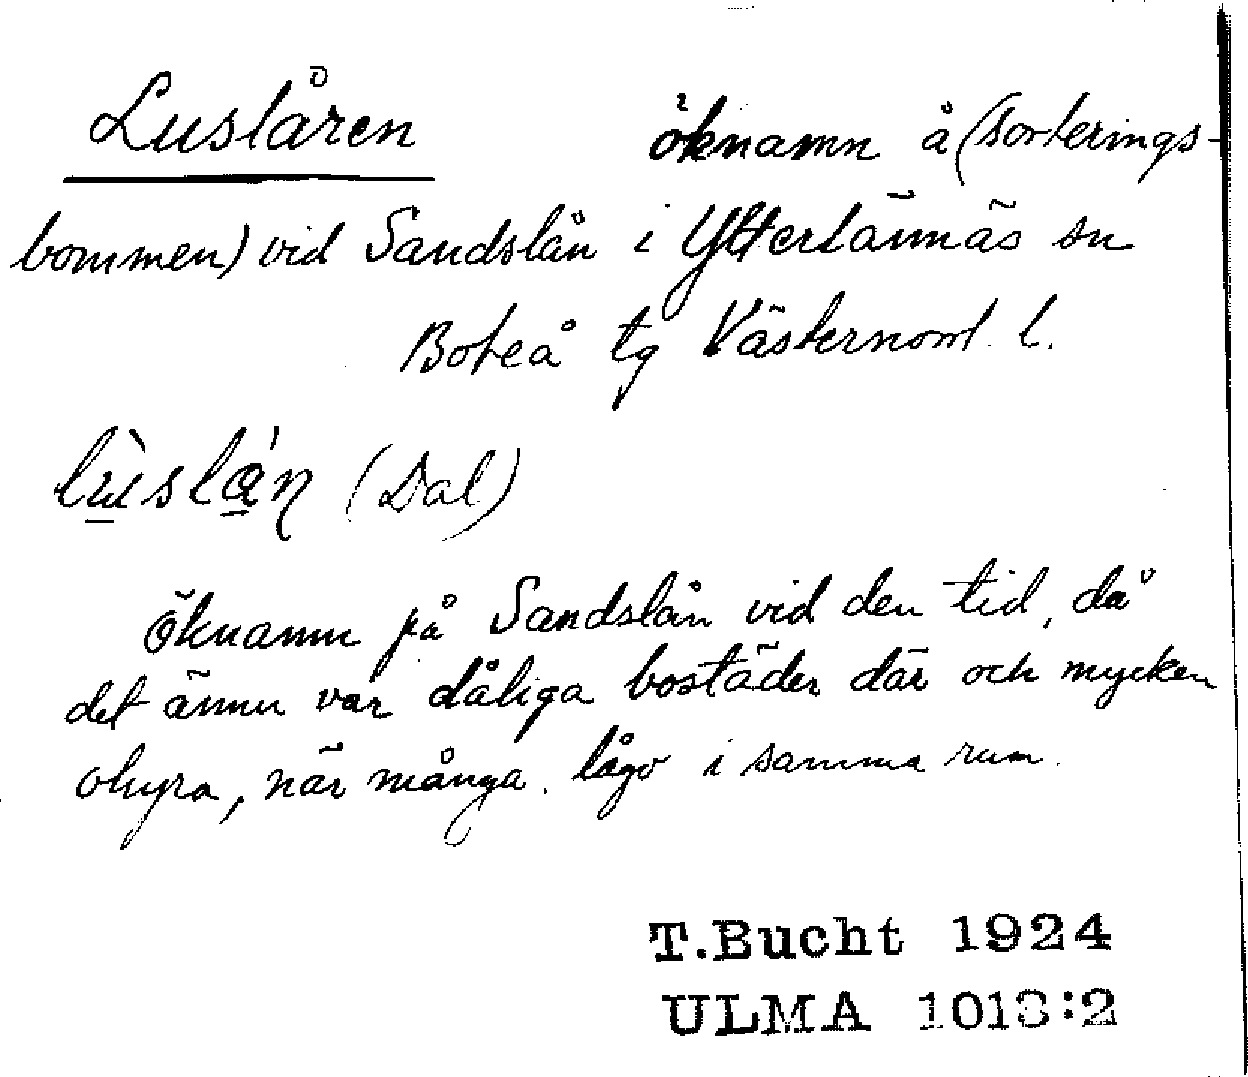 Luslåren öknamn å (sorterings-
bommen) vid Sandslån i Ytterlännäs sn
Boteå tg Västernorrl. l.
(Dal)
Öknamn på Sandslån vid den tid, då
det ännu var dåliga bostäder där och mycken
ohyra, när många lågo i samma rum.
T.Bucht 1924
ULMA 1013:2